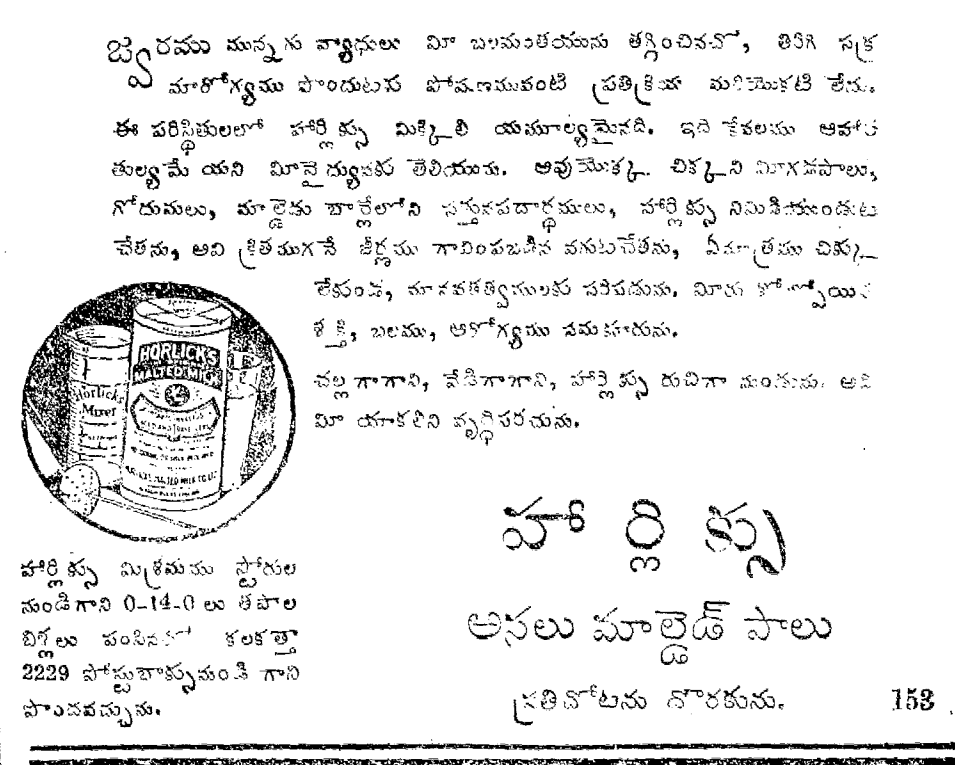 జ్వరము మున్నగు వ్యాధులు మీ బలమంతయును తగ్గించినచో, తిరిగి సక్ర
మారోగ్యము పొందుటకు పోషణమువంటి ప్రతిక్రియా మరియొకటి లేదు.
ఈ పరిస్థితులలో హార్లిక్సు మిక్కిలి యమూల్యమైనది. ఇది కేవలము ఆహార
తుల్యమే యని మీవైద్యునకు తెలియును. ఆవుయొక్క చిక్కని మీగడపాలు,
గోదుమలు, మాల్టెడు బార్లేలోని సత్తువపదార్థములు, హార్లిక్సు నిమిడియుండుట
చేతను, అవి క్రితముగనే జీర్ణము గావింపబడిన వగుటచేతను, ఏమాత్రము చిక్కు
లేకుండ, మానవతత్వములకు సరిపడును. మీరు కోల్పోయిన
శక్తి, బలము, ఆరోగ్యము సమకూరును.
చల్లగాగాని, వేడిగాగాని, హార్లిక్సు రుచిగా నుండును. అది
మీ యాకలిని వృద్ధిపరచును.
HORLICK'S
MALTED MILK
Horlicks
Mixer
హార్లిక్సు
హార్లిక్సు మిశ్రమము స్టోరుల
నుండిగాని 0-14-0 లు తపాల
బిళ్లలు పంపినచో కలకత్తా
2229 పోస్టుబాక్సునుండి గాని
పొందవచ్చును.
అసలు మాల్టెడ్ పాలు
ప్రతిచోటను దొరకును. 153